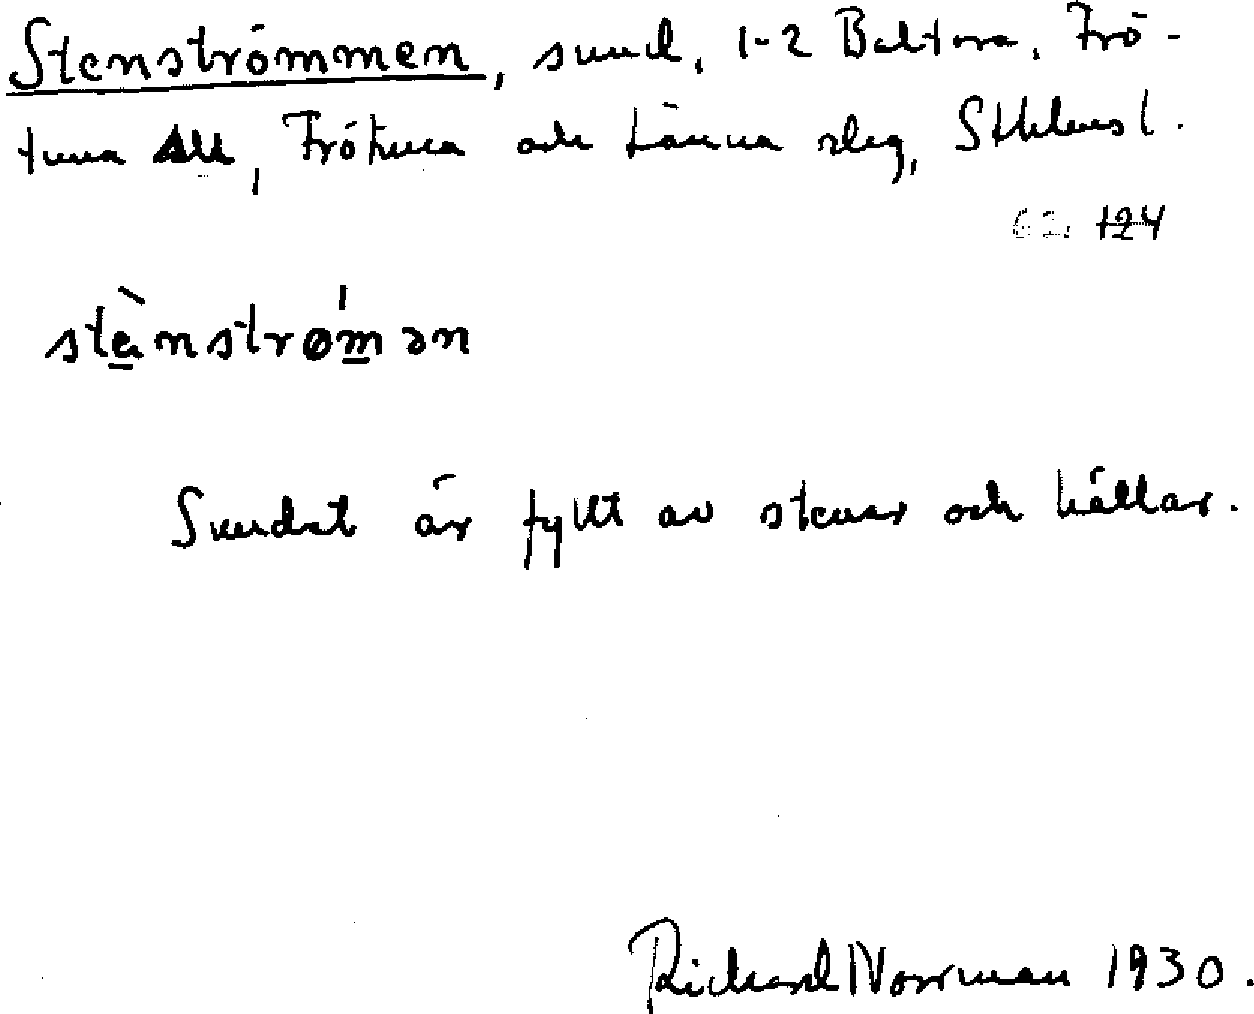 Stenströmmen, sund, 1-2 Baltora, Frö-
tuna sn, Frötuna och Länna slag, Sthlms l.
62. 124
stènstrǿmən
Sundet är fyllt av stenar och hällar.
Richard Norrman 1930.